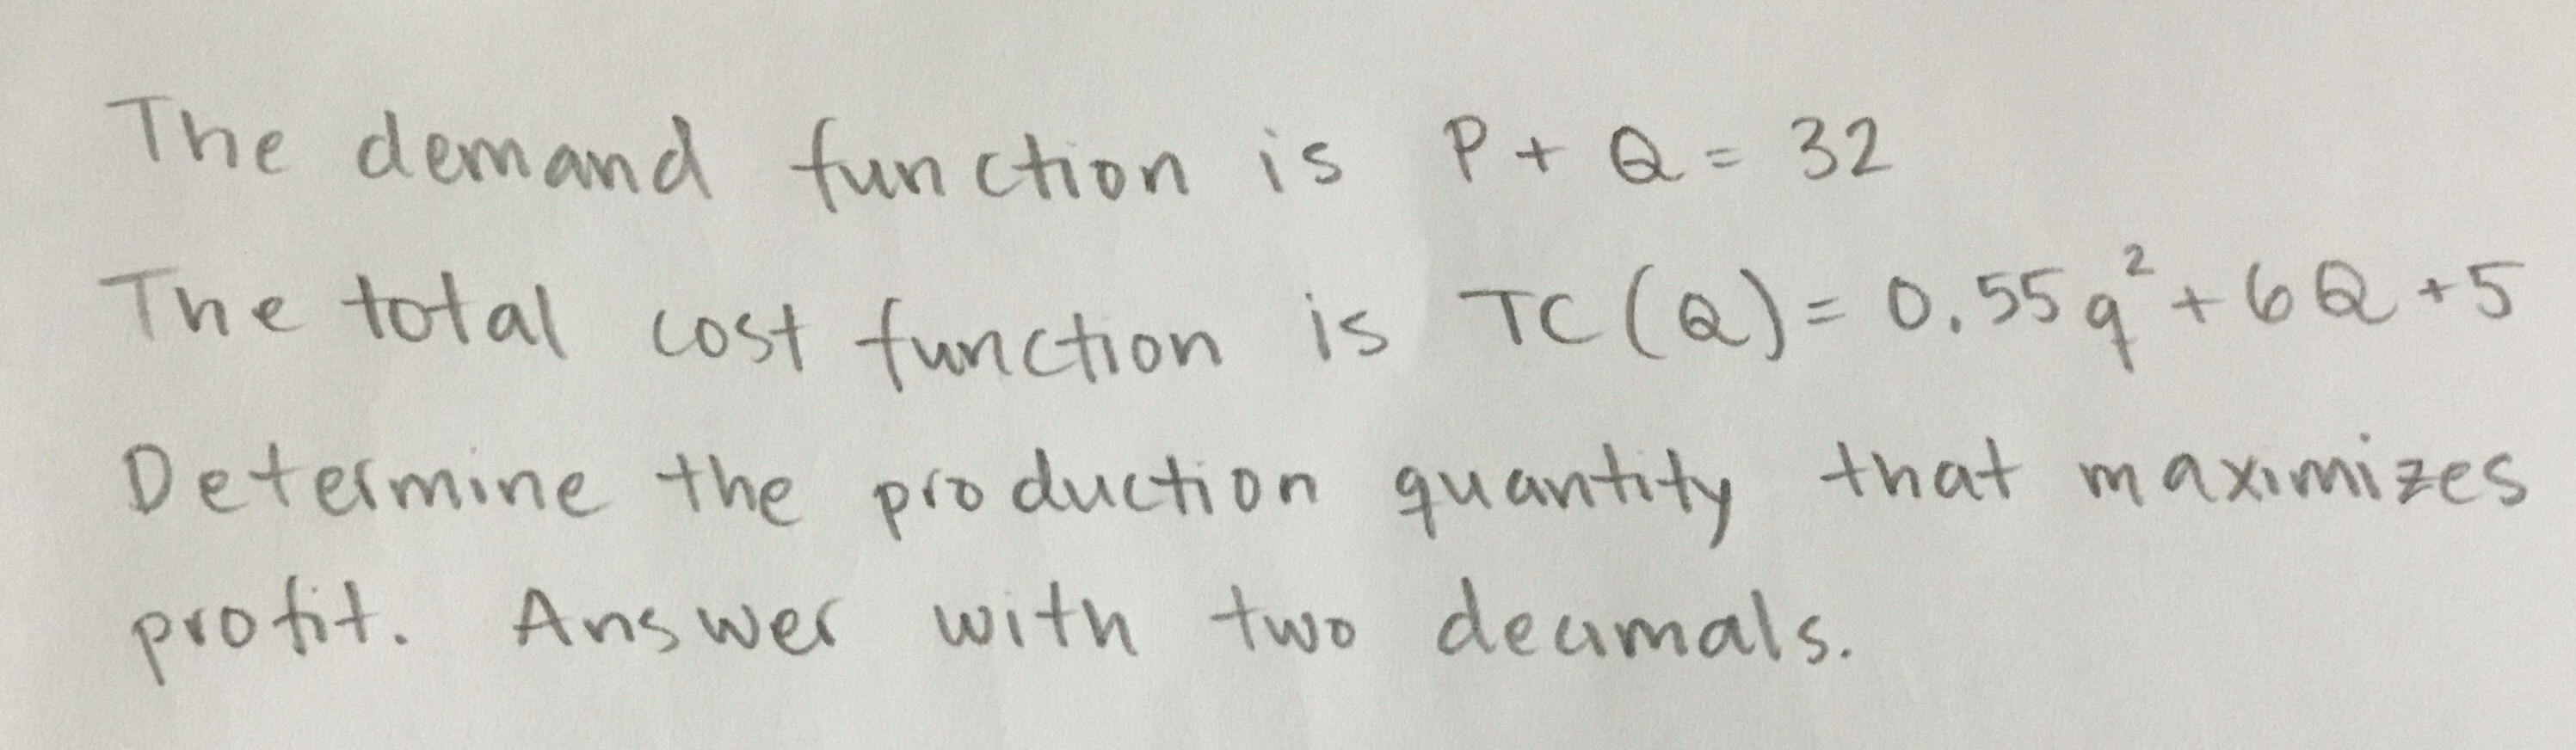 The demand function is P + Q = 32
The total cost function is TC (Q) = 0.55q² + 6Q + 5
Determine the production quantity that maximizes
profit. Answer with two decimals.